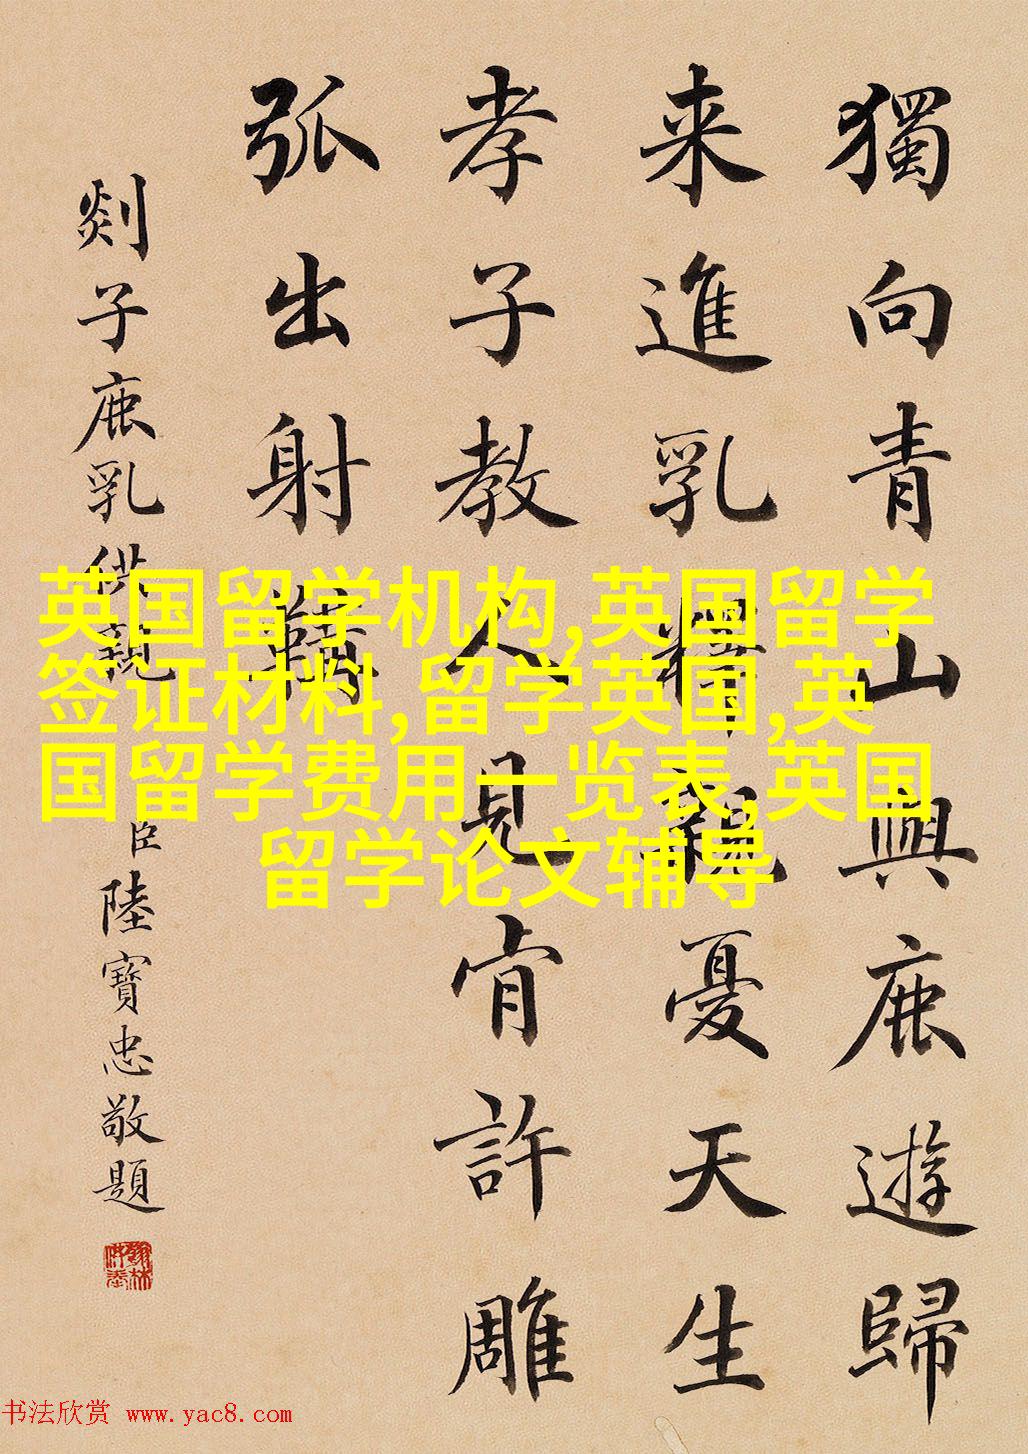 獨向青山與鹿遊歸
来進乳釋親憂天生
孝子教人見肯許雕
弧出射韝
剡子鹿乳供親
臣陸寶忠敬題
翰林供奉
英国留学机构,英国留学
签证材料,留学英国,英
国留学费用一览表,英国
留学论文辅导
书法欣赏 www.yac8.com